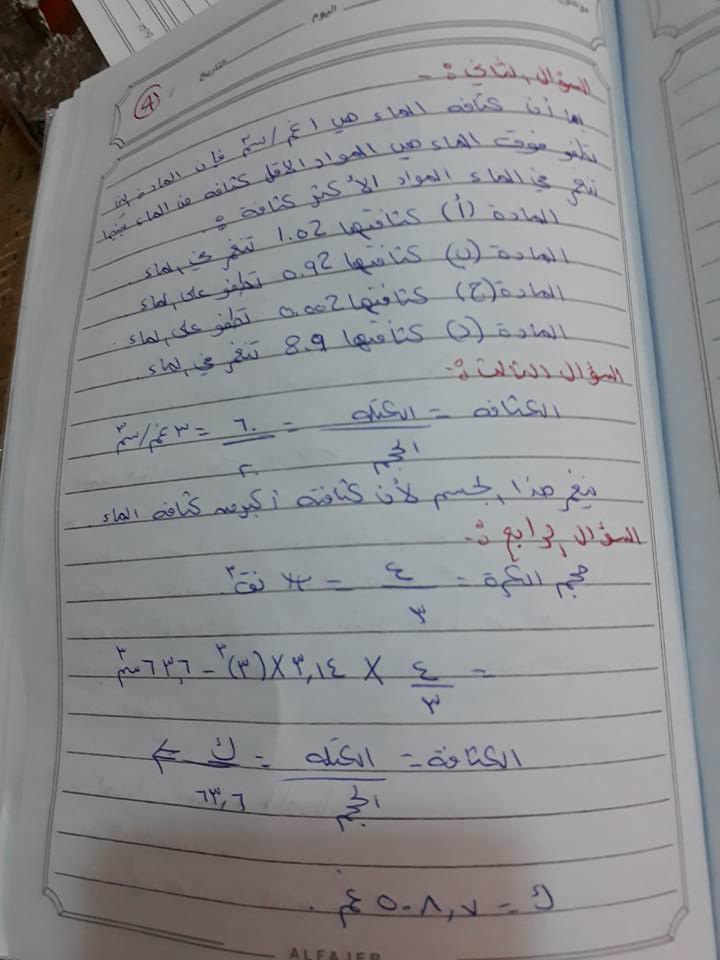 اليوم
التاريخ
٤
السؤال الثاني :-
بما أن كثافة الماء هي ١ غم/سم٣ فإن المادة التي
تطفو فوق الماء هي المواد الأقل كثافة من الماء بينما
تنغمر في الماء المواد الأكثر كثافة :
المادة (أ) كثافتها 1.02 تنغمر في الماء
المادة (ب) كثافتها 0.92 تطفو على الماء
المادة (ج) كثافتها 0.002 تطفو على الماء
المادة (د) كثافتها 8.9 تنغمر في الماء
السؤال الثالث :-
الكثافة = الكتلة / الحجم = ٦٠ / ٢٠ = ٣ غم/سم٣
ينغمر هذا الجسم لأن كثافته أكبر من كثافة الماء
السؤال الرابع :-
حجم الكرة = ٤ / ٣ = π نق٣
= ٤ / ٣ × ٣,١٤ × (٣)٣ = ٦٣,٦ سم٣
الكثافة = الكتلة / الحجم = ك / ٦٣,٦ ⇐
ك = ٥٠٨,٧ غم .
ALFAJER